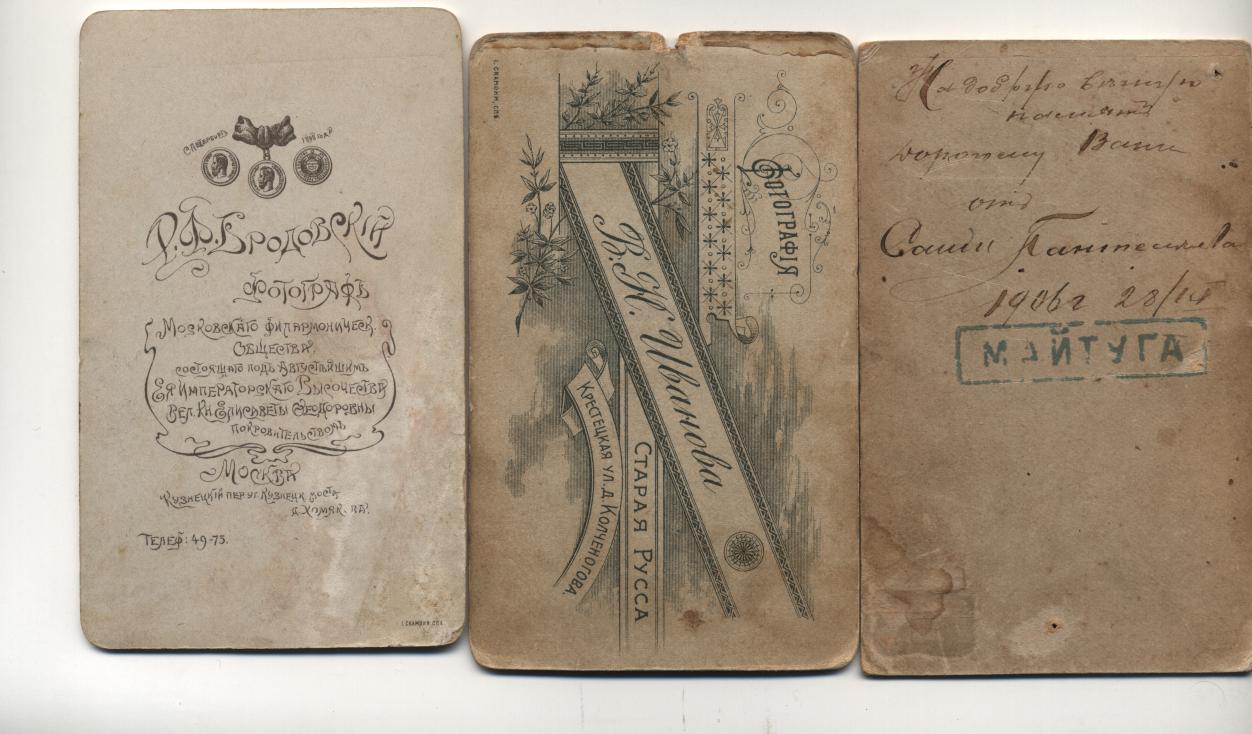 С. ПЕТЕРБУРГЪ 1898 ГОДА
Р.Ф. БРОДОВСКІЙ
ФОТОГРАФЪ
МОСКОВСКАГО ФИЛАРМОНИЧЕСК.
ОБЩЕСТВА,
СОСТОЯЩАГО ПОДЪ АВГУСТѢЙШИМЪ
ЕЯ ИМПЕРАТОРСКАГО ВЫСОЧЕСТВА
ВЕЛ. КН. ЕЛИСАВЕТЫ ѲЕОДОРОВНЫ
ПОКРОВИТЕЛЬСТВОМЪ
МОСКВА
КУЗНЕЦКІЙ ПЕР. УГ. КУЗНЕЦК. МОСТА
Д. ХОМЯК-ВА.
ТЕЛЕФ: 49-73.
І. СКАМОНИ, СПБ.
І. СКАМОНИ, СПБ
ФОТОГРАФІЯ
В. К. Иванова
СТАРАЯ РУССА
КРЕСТЕЦКАЯ УЛ. Д. КОЛЧЕНОГОВА
На добрую вѣчную
память
дорогому Вани
отъ
Саши Пантелѣева
1906 г 28/IX
МАЙТУГА